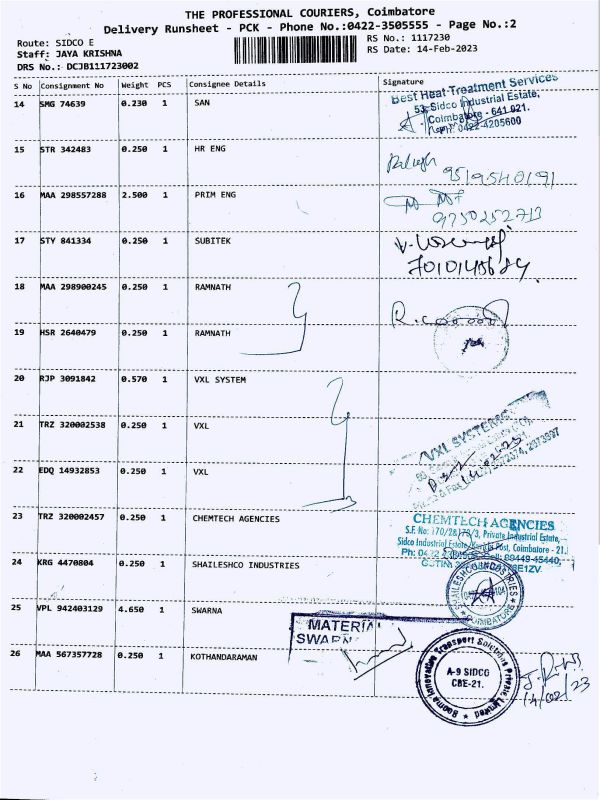 THE PROFESSIONAL COURIERS, Coimbatore
Delivery Runsheet - PCK - Phone No.:0422-3505555 - Page No.:2
Route: SIDCO E
Staff: JAYA KRISHNA
DRS No.: DCJB111723002
RS No.: 1117230
RS Date: 14-Feb-2023
S No Consignment No Weight PCS Consignee Details Signature
14 SMG 74639 0.230 1 SAN
Best Heat Treatment Services
53, Sidco Industrial Estate,
Coimbatore - 641 021.
0422-4205600
15 STR 342483 0.250 1 HR ENG
9519540191
16 MAA 298557288 2.500 1 PRIM ENG
9750252713
17 STY 841334 0.250 1 SUBITEK
18 MAA 298900245 0.250 1 RAMNATH
19 HSR 2640479 0.250 1 RAMNATH
20 RJP 3091842 0.570 1 VXL SYSTEM
21 TRZ 320002538 0.250 1 VXL
VXL SYSTEMS
22 EDQ 14932853 0.250 1 VXL
23 TRZ 320002457 0.250 1 CHEMTECH AGENCIES
CHEMTECH AGENCIES
S.F. No: 170/2 Private Industrial Estate,
Sidco Industrial Estate, Post, Coimbatore - 21.
24 KRG 4470804 0.250 1 SHAILESHCO INDUSTRIES
SHAILESHCO INDUSTRIES
COIMBATORE
25 VPL 942403129 4.650 1 SWARNA
MATERIAL
SWARN
26 MAA 567357728 0.250 1 KOTHANDARAMAN
Booma Innovative Transport Solutions Private Limited
A-9 SIDCO
CBE-21.
14/02/23